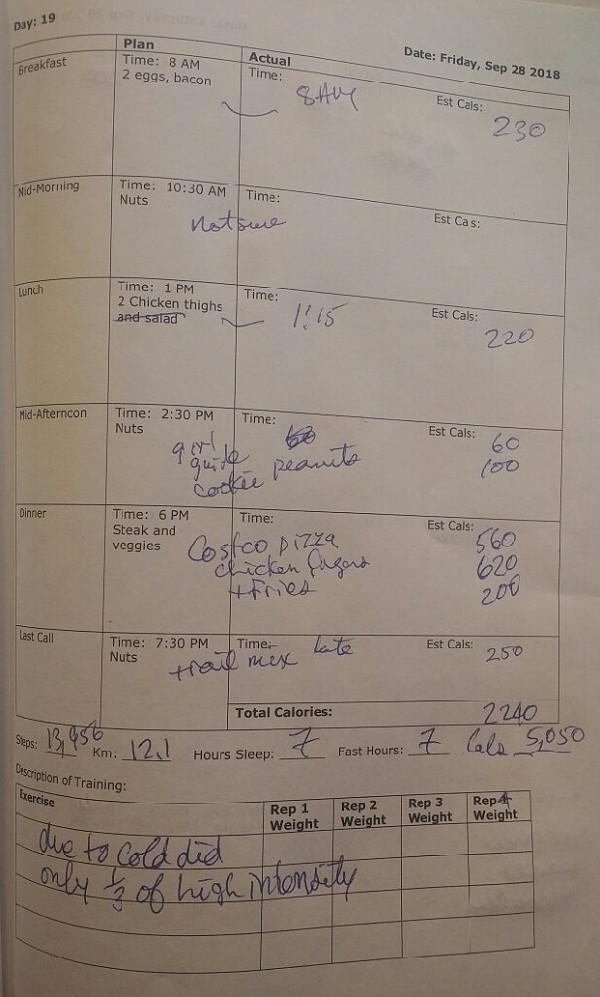 Day: 19
Date: Friday, Sep 28 2018
Plan Actual
Breakfast Time: 8 AM Time: 8 AM Est Cals: 230
2 eggs, bacon
Mid-Morning Time: 10:30 AM Time: Est Cals:
Nuts
Not sure
Lunch Time: 1 PM Time: 1:15 Est Cals: 220
2 Chicken thighs
and salad
Mid-Afternoon Time: 2:30 PM Time: Est Cals: 60
Nuts girl 100
guide peanuts
cookie
Dinner Time: 6 PM Time: Est Cals:
Steak and
veggies Costco pizza 560
chicken fingers 620
+ Fries 200
Last Call Time: 7:30 PM Time: late Est Cals: 250
Nuts trail mex
Total Calories: 2240
Steps: 13,956 Km: 12.1 Hours Sleep: 7 Fast Hours: 7 Cals 5,050
Discription of Training:
Exercise Rep 1 Weight Rep 2 Weight Rep 3 Weight Rep 4 Weight
due to cold did
only 1/3 of high intensity